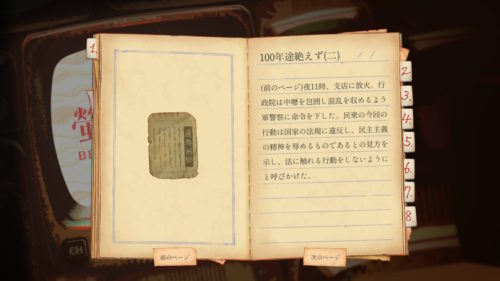 1.
100年途絶えず(二)
(前のページ)夜11時、支店に放火。行
政院は中壢を包囲し混乱を収めるよう
軍警察に命令を下した。民衆の今回の
行動は国家の法規に違反し、民主主義
の精神を辱めるものであるとの見方を
示し、法に触れる行動をしないように
と呼びかけた。
2.
3.
4.
5.
6.
7.
8.
前のページ
次のページ
CH